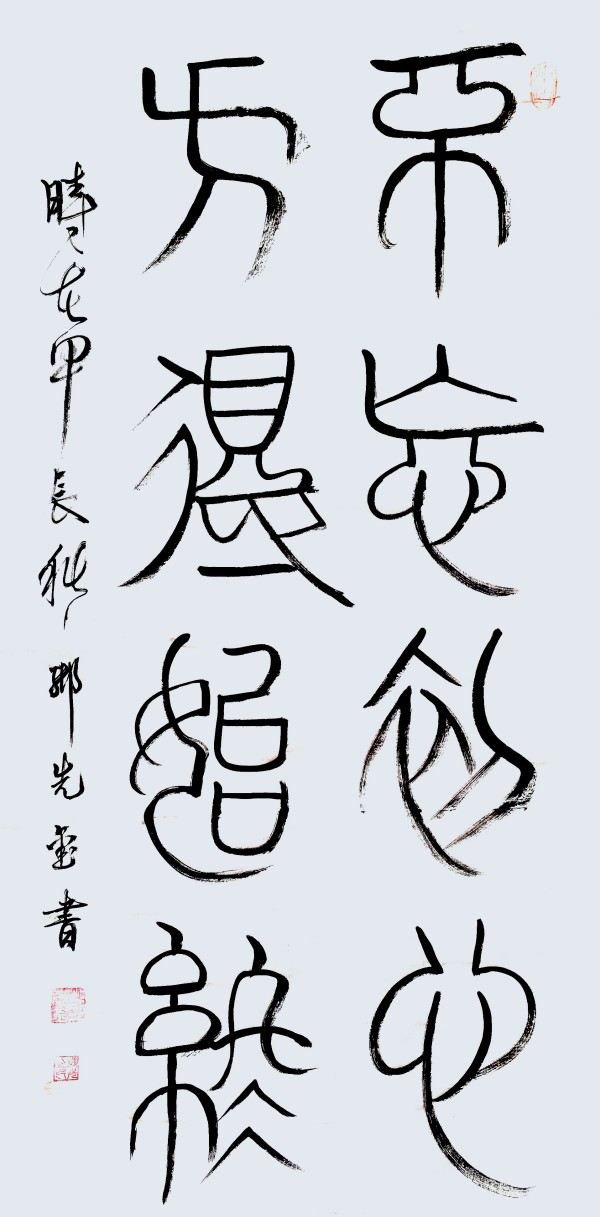 不忘初心
方得始終
時在甲辰秋 先 書